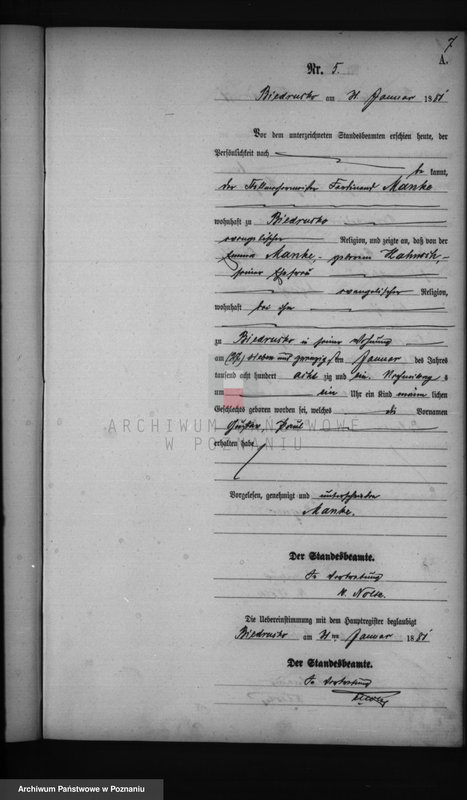 7
A.
Nr. 5.
Biedrusko am 31 Januar 1881
Vor dem unterzeichneten Standesbeamten erschien heute, der
Persönlichkeit nach
be kannt,
der Stellmachermeister Ferdinand Manke
wohnhaft zu Biedrusko
evangelischer Religion, und zeigte an, daß von der
Emma Manke, geborenen
seiner Ehefrau
evangelischer Religion,
wohnhaft bei ihm
zu Biedrusko in seiner Wohnung
am (27) sieben und zwanzigsten Januar des Jahres
tausend acht hundert acht zig und ein Vormittag s
um ein Uhr ein Kind männ lichen
Geschlechts geboren worden sei, welches die Vornamen
Gustav, Paul
erhalten habe
ARCHIWUM PAŃSTWOWE
W POZNANIU
Vorgelesen, genehmigt und unterschrieben
Manke.
Der Standesbeamte.
In Vertretung
Nolte.
Die Uebereinstimmung mit dem Hauptregister beglaubigt
Biedrusko am 31ten Januar 1881
Der Standesbeamte.
In Vertretung
Archiwum Państwowe w Poznaniu